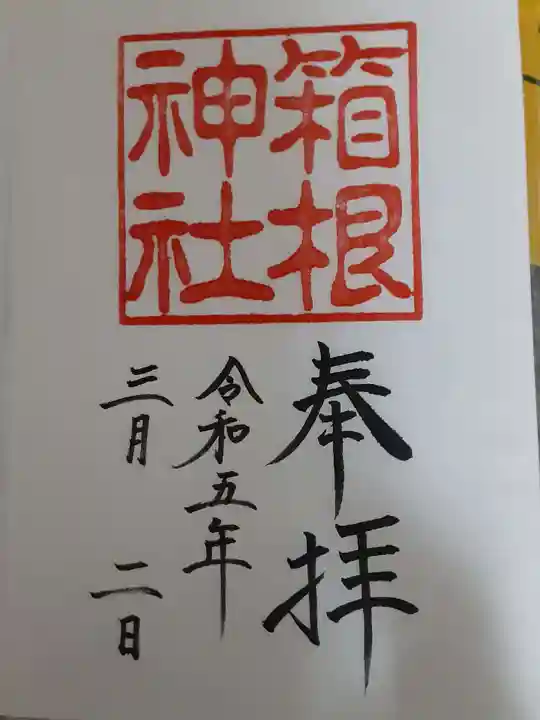 箱根
神社
奉拝
令和五年
三月 二日